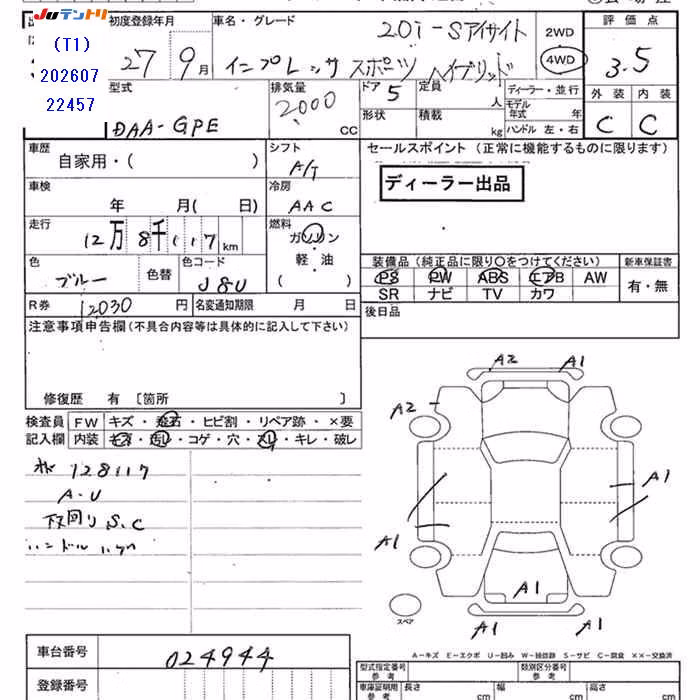 JUテントリ
(T1)
202607
22457
初度登録年月
27 9月
車名・グレード
20i-Sアイサイト
インプレッサスポーツ ハイブリッド
2WD
4WD
評価点
3.5
外装 内装
C C
型式
DAA-GPE
排気量
2000
CC
ドア 5
定員
人
形状
積載
kg
ディーラー・並行
モデル年式 年
ハンドル 左・右
車歴
自家用・( )
シフト
A/T
セールスポイント (正常に機能するものに限ります)
ディーラー出品
車検
年 月( 日)
冷房
AAC
走行
12万8千117km
燃料
ガソリン
軽・油
色
ブルー
色替
色コード
J8U
装備品(純正品に限り○をつけてください)
PS PW ABS エアB AW
SR ナビ TV カワ
新車保証書
有・無
R券 12030円
名変通知期限 月 日
後日品
注意事項申告欄(不具合内容等は具体的に記入して下さい)
修復歴 有 〔箇所 〕
検査員記入欄
FW キズ・飛石・ヒビ割・リペア跡・×要
内装 キズ・汚し・コゲ・穴・スリ・キレ・破レ
128117
A・U
下回りS.C
ハンドル
A2 A1
A2
A1
A1
A1
A1 A1
スペア
A-キズ E-エクボ U-凹み W-補修跡 S-サビ C-腐食 ××-交換済
車台番号
024944
登録番号
型式指定番号 参考
類別区分番号 参考
車庫証明用 参考
長さ cm
幅 cm
高さ cm